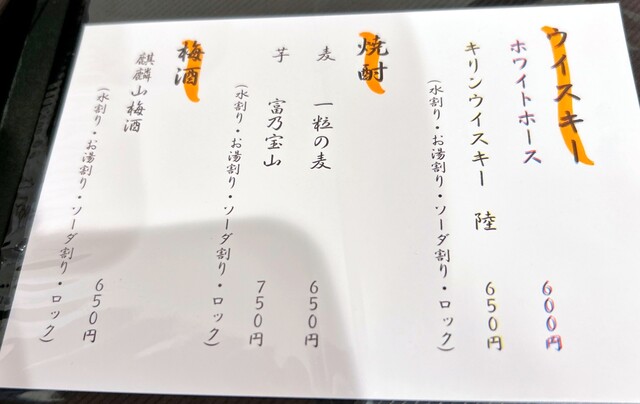 ウイスキー
ホワイトホース 600円
キリンウイスキー 陸 650円
(水割り・お湯割り・ソーダ割り・ロック)
焼酎
麦 一粒の麦 650円
芋 富乃宝山 750円
(水割り・お湯割り・ソーダ割り・ロック)
梅酒
麒麟山梅酒 650円
(水割り・お湯割り・ソーダ割り・ロック)